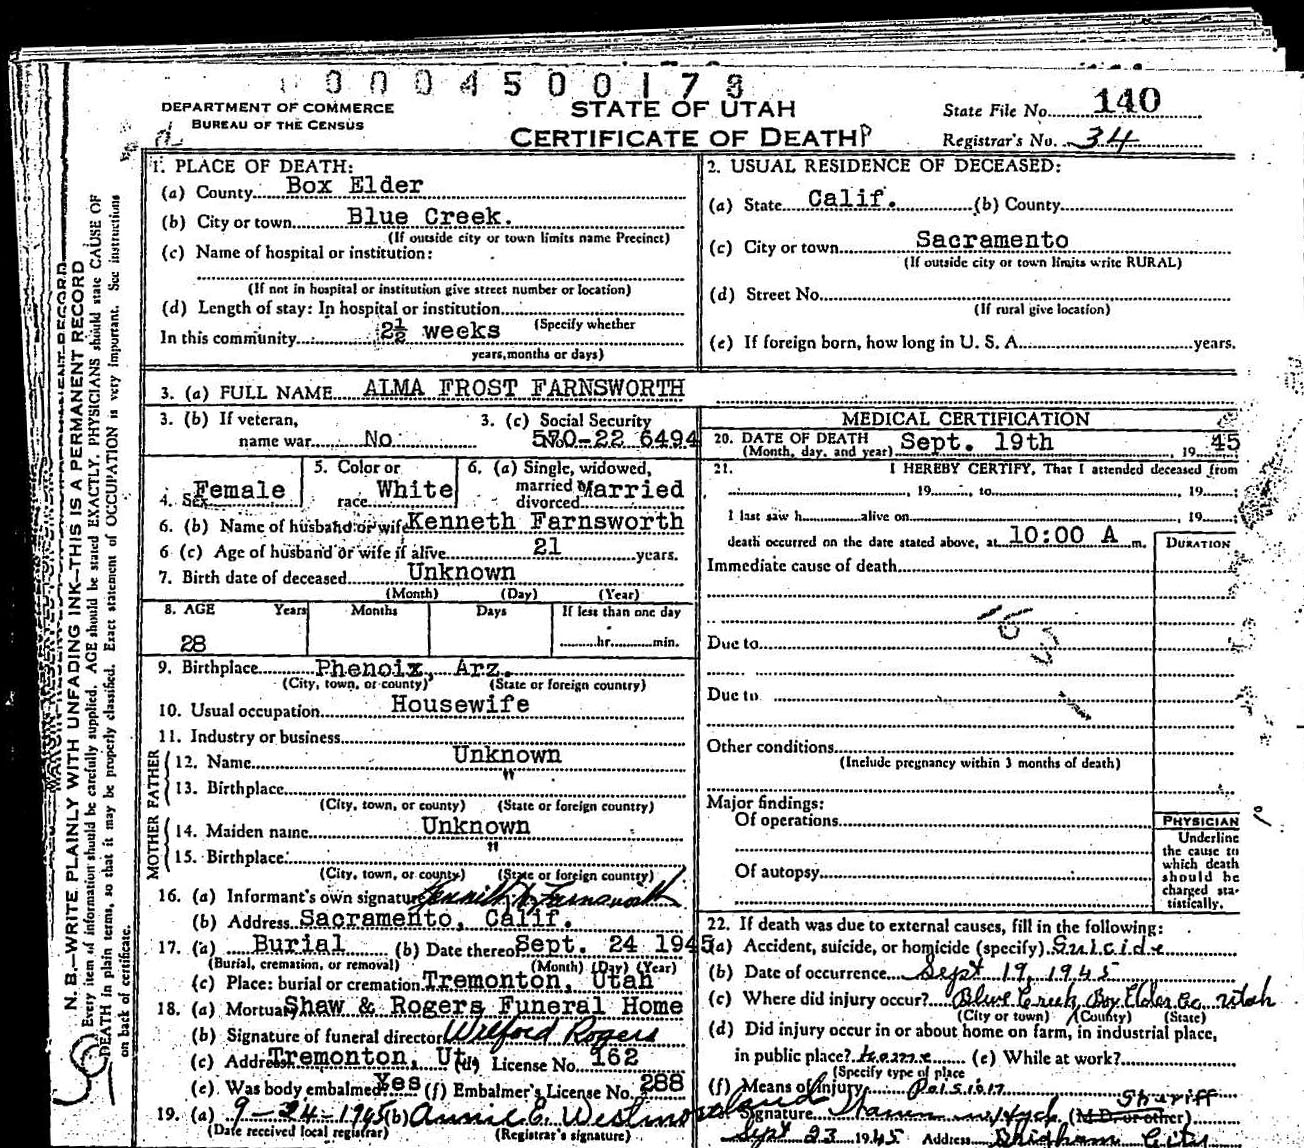 0004500178
DEPARTMENT OF COMMERCE
BUREAU OF THE CENSUS
STATE OF UTAH
CERTIFICATE OF DEATH
State File No. 140
Registrar's No. 34
1. PLACE OF DEATH:
(a) County Box Elder
(b) City or town Blue Creek.
(If outside city or town limits name Precinct)
(c) Name of hospital or institution:
(If not in hospital or institution give street number or location)
(d) Length of stay: In hospital or institution
(Specify whether
In this community 2½ weeks
years, months or days)
2. USUAL RESIDENCE OF DECEASED:
(a) State Calif. (b) County
(c) City or town Sacramento
(If outside city or town limits write RURAL)
(d) Street No.
(If rural give location)
(e) If foreign born, how long in U. S. A. years.
3. (a) FULL NAME ALMA FROST FARNSWORTH
3. (b) If veteran,
name war No
3. (c) Social Security
570-22 6494
4. Sex Female
5. Color or
race White
6. (a) Single, widowed,
married Married
divorced
6. (b) Name of husband or wife Kenneth Farnsworth
6 (c) Age of husband or wife if alive 21 years.
7. Birth date of deceased Unknown
(Month) (Day) (Year)
8. AGE Years Months Days If less than one day
28 hr. min.
9. Birthplace Phenoix, Arz.
(City, town, or county) (State or foreign country)
10. Usual occupation Housewife
11. Industry or business
FATHER
12. Name Unknown
13. Birthplace "
(City, town, or county) (State or foreign country)
MOTHER
14. Maiden name Unknown
15. Birthplace "
(City, town, or county) (State or foreign country)
16. (a) Informant's own signature Kenneth Farnsworth
(b) Address Sacramento, Calif.
17. (a) Burial (b) Date thereof Sept. 24 1945
(Burial, cremation, or removal) (Month) (Day) (Year)
(c) Place: burial or cremation Tremonton, Utah
18. (a) Mortuary Shaw & Rogers Funeral Home
(b) Signature of funeral director Wilford Rogers
(c) Address Tremonton, Ut. (d) License No. 162
(e) Was body embalmed Yes (f) Embalmer's License No. 288
19. (a) 9-24-1945 (b) Annie E. Westmoreland
(Date received local registrar) (Registrar's signature)
MEDICAL CERTIFICATION
20. DATE OF DEATH
(Month, day, and year) Sept. 19th , 1945
21. I HEREBY CERTIFY, That I attended deceased from
, 19 , to , 19 ;
I last saw h alive on , 19 ;
death occurred on the date stated above, at 10:00 A m.
DURATION
Immediate cause of death
Due to
Due to
Other conditions
(Include pregnancy within 3 months of death)
Major findings:
Of operations
Of autopsy
PHYSICIAN
Underline
the cause to
which death
should be
charged sta-
tistically.
22. If death was due to external causes, fill in the following:
(a) Accident, suicide, or homicide (specify) Suicide
(b) Date of occurrence Sept 19, 1945
(c) Where did injury occur? Blue Creek, Box Elder Co. Utah
(City or town) (County) (State)
(d) Did injury occur in or about home on farm, in industrial place,
in public place? home (e) While at work?
(Specify type of place
(f) Means of injury Poison
Sheriff
Signature (M.D. or other)
Sept 23 1945 Address Brigham City
N. B.—WRITE PLAINLY WITH UNFADING INK—THIS IS A PERMANENT RECORD
Every item of information should be carefully supplied. AGE should be stated EXACTLY. PHYSICIANS should state CAUSE OF
DEATH in plain terms, so that it may be properly classified. Exact statement of OCCUPATION is very important. See instructions
on back of certificate.